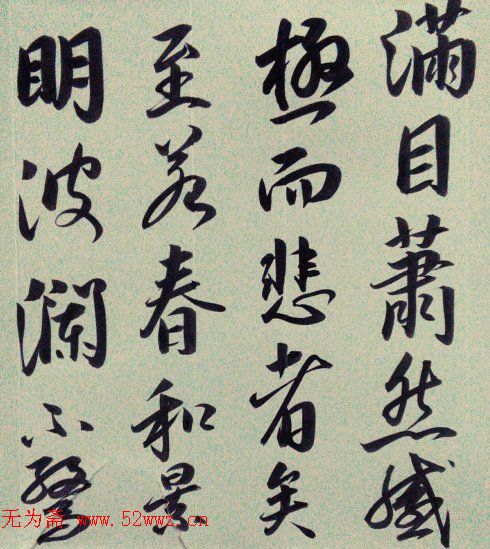 滿目蕭然感
極而悲者矣
至若春和景
明波瀾不驚
无为斋 www.52wwz.cn